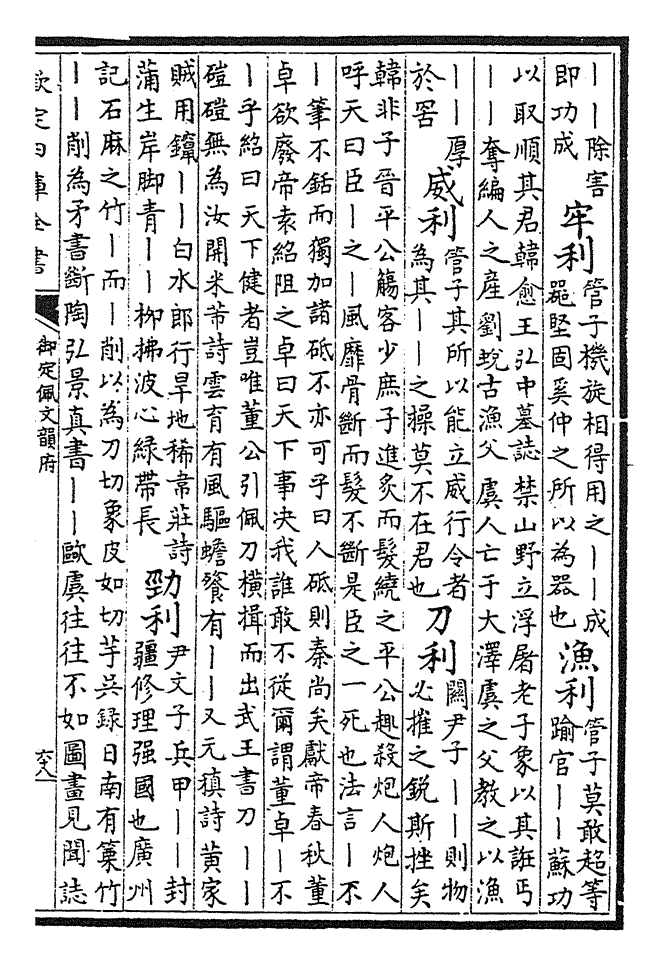 丨丨除害
即功成
牢利
管子機旋相得用之丨丨成
器堅固奚仲之所以為器也
漁利
管子莫敢超等
踰官丨丨蘇功
以取順其君韓愈王弘中墓誌禁山野立浮屠老子象以其誑丐
丨丨奪編人之產劉蛻古漁父虞人亡于大澤虞之父教之以漁
丨丨厚
於罟
威利
管子其所以能立威行令者
為其丨丨之操莫不在君也
刀利
關尹子丨丨則物
必摧之銳斯挫矣
韓非子晉平公觴客少庶子進炙而髮繞之平公趣殺炮人炮人
呼天曰臣丨之丨風靡骨斷而髮不斷是臣之一死也法言丨不
丨筆不銛而獨加諸砥不亦可乎曰人砥則秦尚矣獻帝春秋董
卓欲廢帝袁紹阻之卓曰天下事决我誰敢不從爾謂董卓丨不
丨乎紹曰天下健者豈唯董公引佩刀橫揖而出武王書刀丨丨
磑磑無為汝開米芾詩雲育有風驅蟾餮有丨丨又元稹詩黃家
賊用鑹丨丨白水郎行旱地稀韋莊詩
蒲生岸脚青丨丨柳拂波心綠帶長
勁利
尹文子兵甲丨丨封
疆修理强國也廣州
記石麻之竹丨而丨削以為刀切象皮如切芋吳録日南有篥竹
丨丨削為矛書斷陶弘景真書丨丨歐虞往往不如圖畫見聞誌
欽定四庫全書
御定佩文韻府
六八